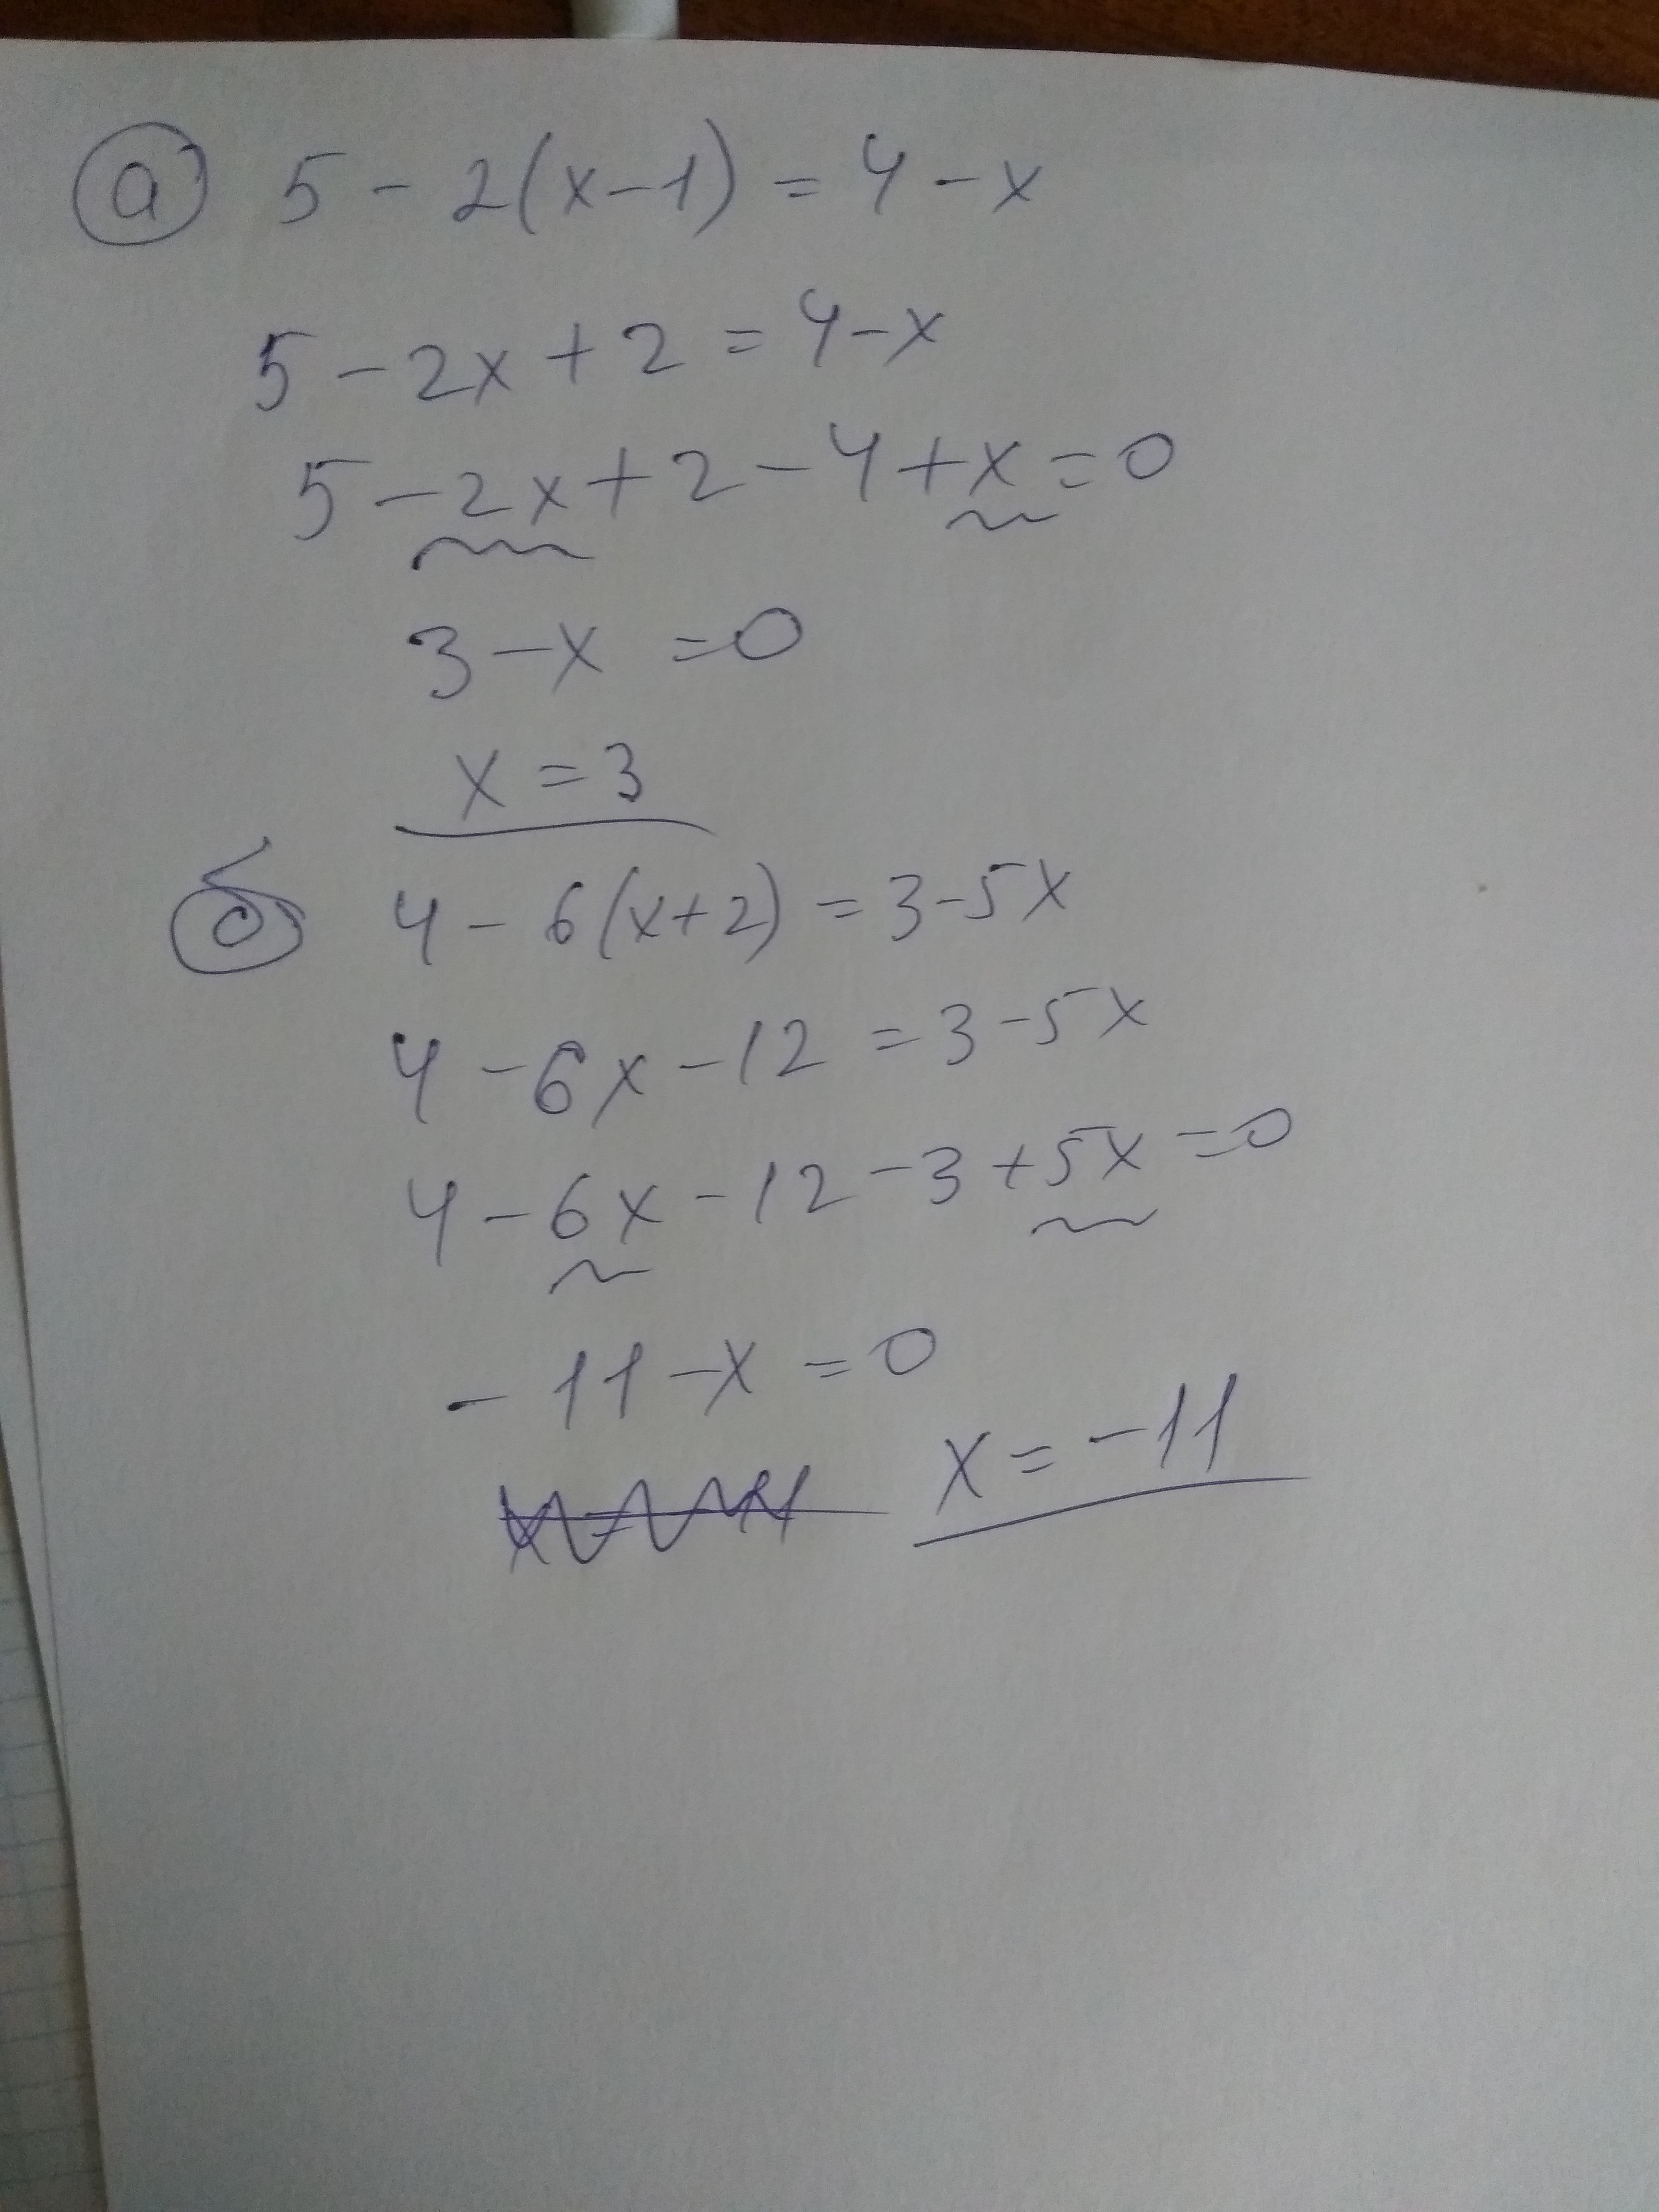 а 5 - 2(x-1) = 4 - x
5 - 2x + 2 = 4 - x
5 - 2x + 2 - 4 + x = 0
3 - x = 0
x = 3
б 4 - 6(x+2) = 3 - 5x
4 - 6x - 12 = 3 - 5x
4 - 6x - 12 - 3 + 5x = 0
- 11 - x = 0
x = -11